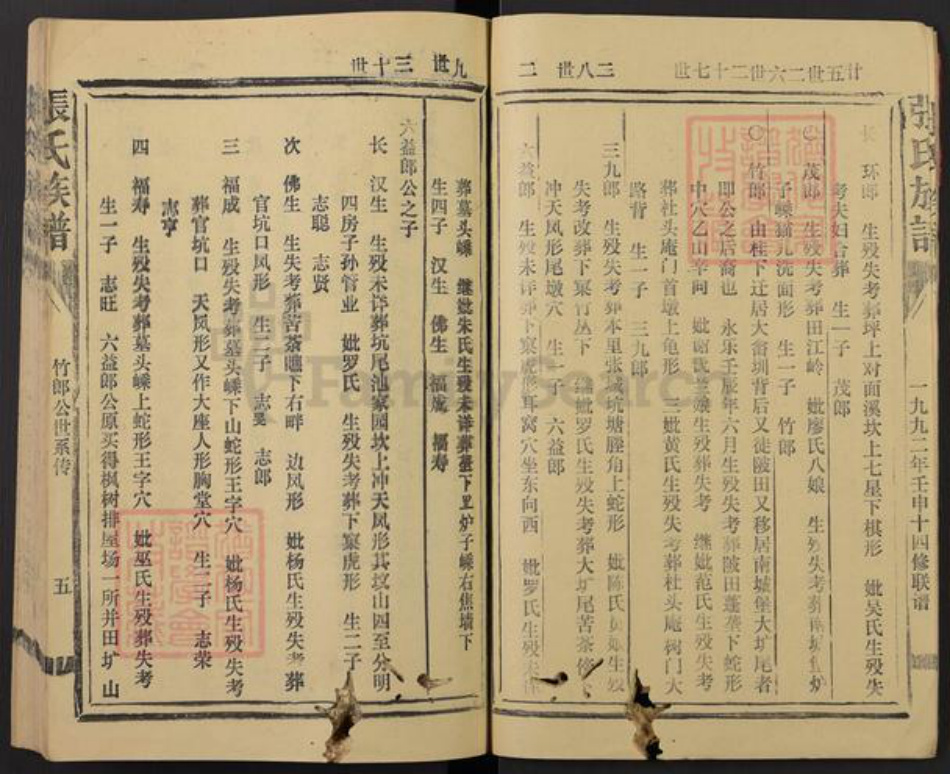 張氏族譜
一九九二年壬申十四修联谱
廿五世二六世二十七世
三八世 二
长 环郎 生殁失考葬坪上对面溪坎上七星下棋形 妣吴氏生殁失
考夫妇合葬 生一子 茂郎
茂郎 生殁失考葬田江岭 妣廖氏八娘 生殁失考葬 炉
子嵊猫儿洗面形 生一子 竹郎
竹郎 由桂下迁居大畲圳背后又徒陂田又移居南城堡大圹尾者
即公之后裔也 永乐壬辰年六月生殁失考葬陂田蓬垄下蛇形
中穴乙山辛向 妣 娘生殁葬失考 继妣范氏生殁失考
葬社头庵门首墩上龟形 三妣黄氏生殁失考葬杜头庵树门大
路背 生一子 三九郎
三九郎 生殁失考葬本里张城坑塘塍角上蛇形 妣陈氏 娘生殁
失考改葬下窠竹丛下 继妣罗氏生殁失考葬大圹尾苦茶
冲天凤形尾墩穴 生一子 六益郎
六益郎 生殁未详葬下窠虎形耳窝穴坐东向西 妣罗氏生殁
九世 三十世
葬墓头嵊 继妣朱氏生殁未详葬 下里炉子嵊右焦墙下
生四子 汉生 佛生 福成 福寿
六益郎公之子
长 汉生 生殁未详葬坑尾池家园坎上冲天凤形其坟山四至分明
四房子孙管业 妣罗氏 生殁失考葬下窠虎形 生二子
志聪 志贤
次 佛生 生失考葬苦茶 下右畔 边凤形 妣杨氏生殁失考葬
官坑口凤形 生二子 志 志郎
三 福成 生殁失考葬墓头嵊下山蛇形王字穴 妣杨氏生殁失考
葬官坑口 天凤形又作大座人形胸堂穴 生二子 志荣
志亨
四 福寿 生殁失考葬墓头嵊上蛇形王字穴 妣巫氏生殁葬失考
生一子 志旺 六益郎公原买得枫树排屋场一所并田圹山
張氏族谱
竹郎公世系传
五
FamilySearch